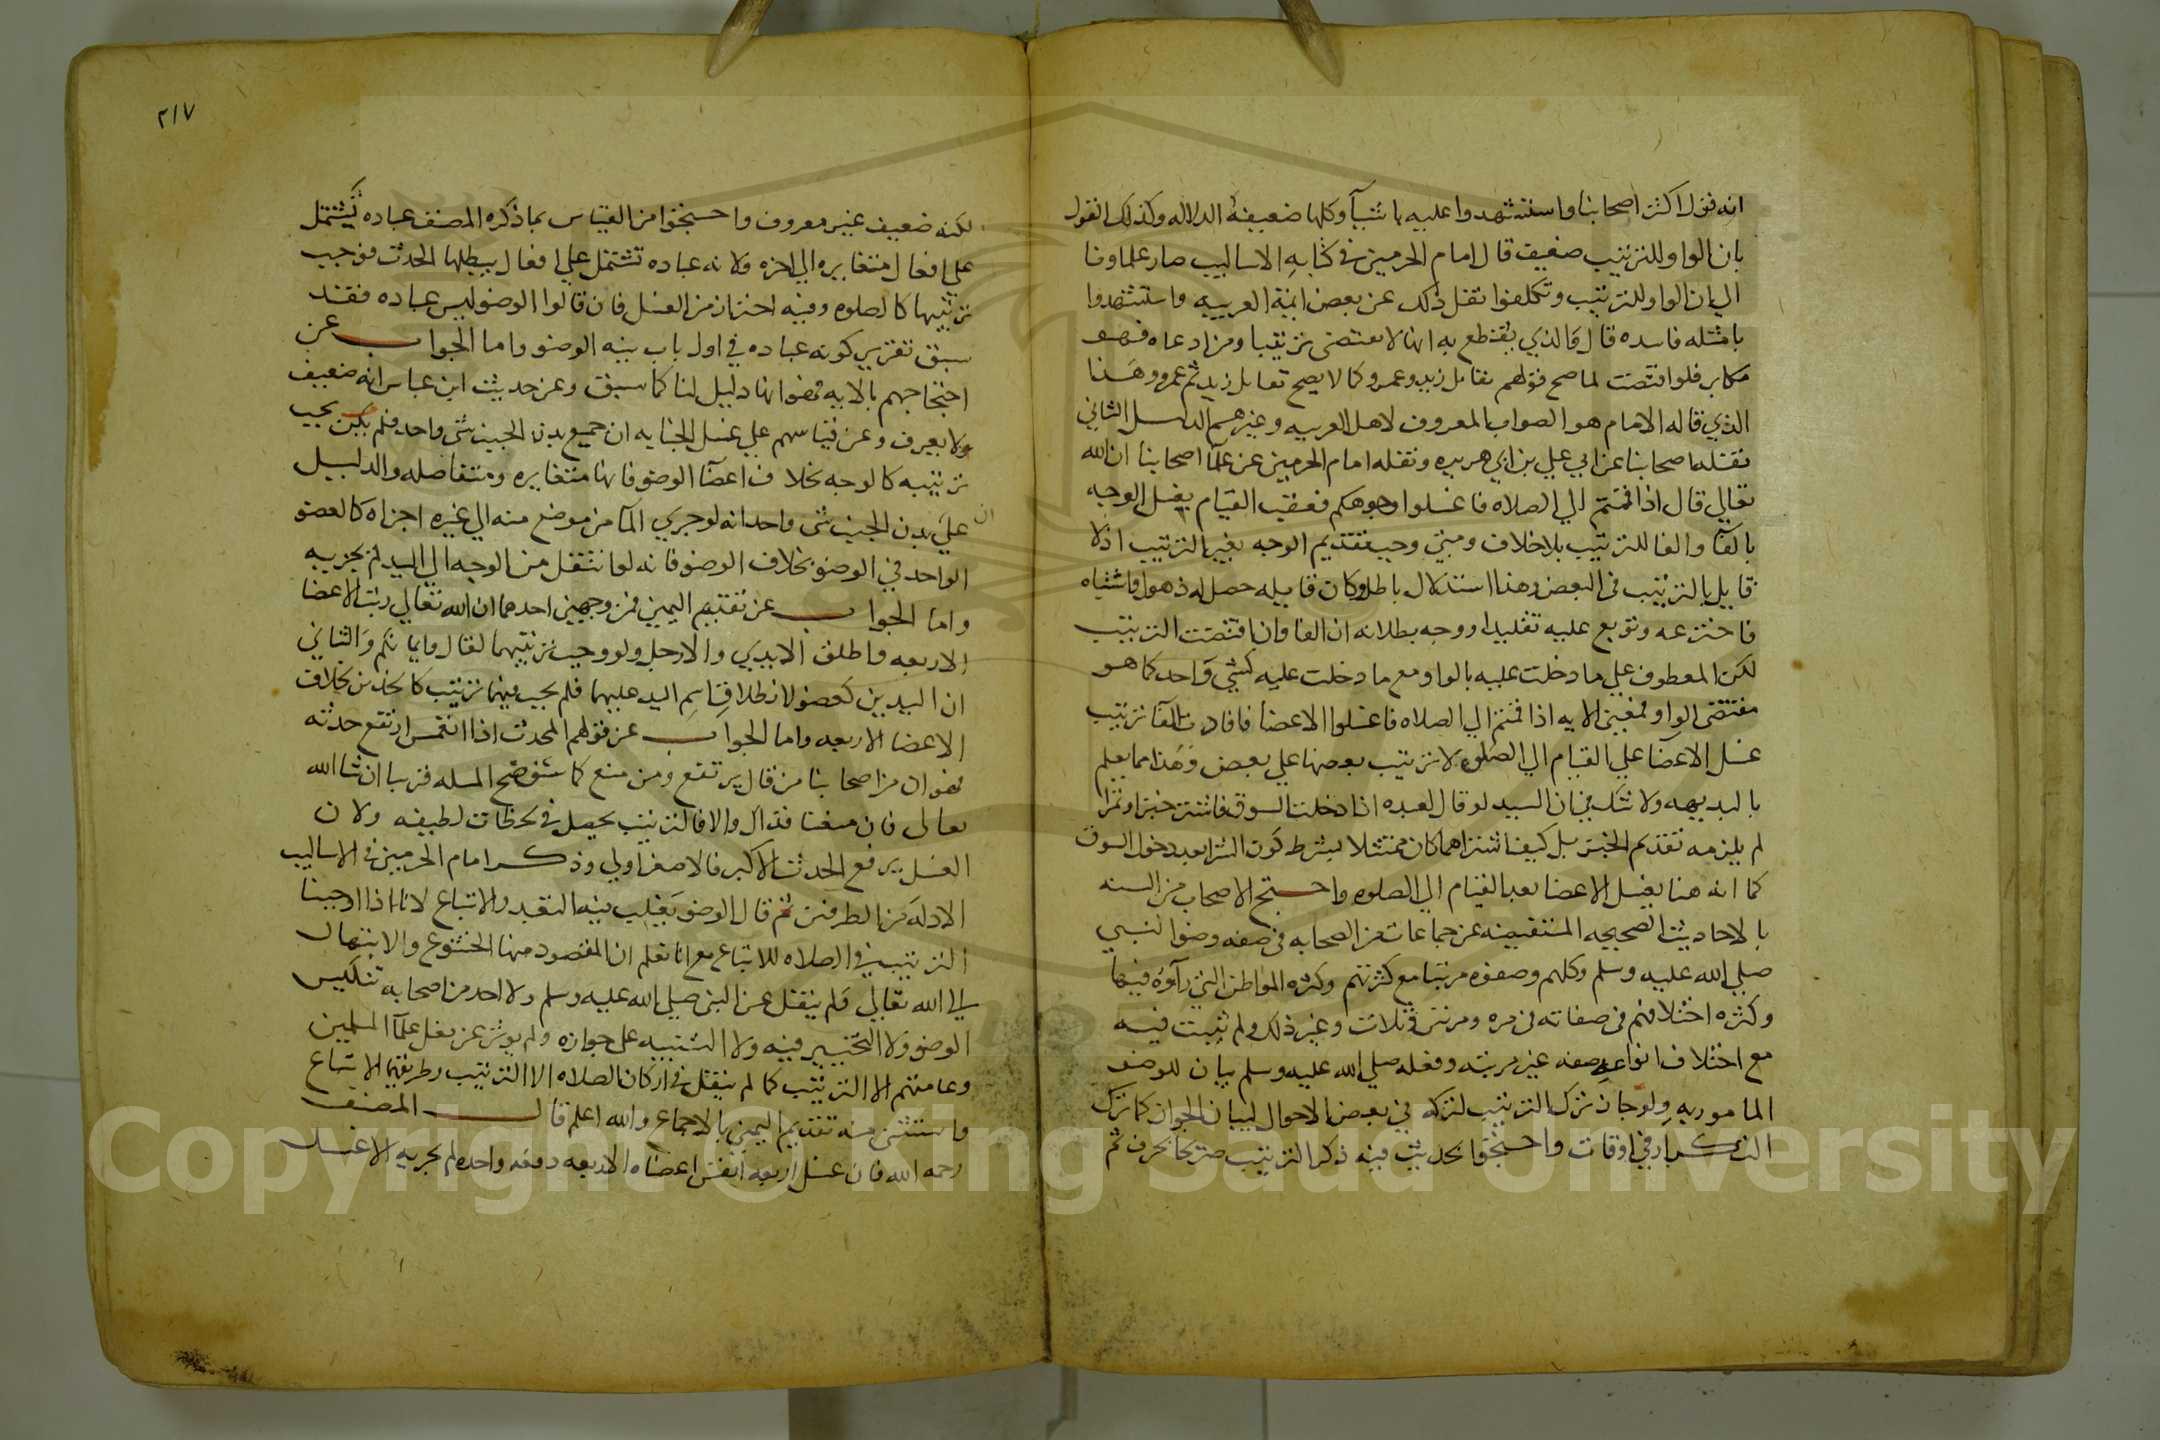 انه قول اكثر اصحابنا واستشهدوا عليه باشيآ وكلها ضعيفة الدلاله وكذلك القول
بان الواو للترتيب ضعيف قال امام الحرمين في كتابه الاساليب صار علماونا
الي ان الواو للترتيب وتكلفوا نقل ذلك عن بعض ايمة العربيه واستشهدوا
بامثله فاسده قال والذي يقطع به انها لا تقتضى ترتيبا ومن ادعاه فهو
مكابر فلو اقتضت لما صح قولهم تقاتل زيد وعمرو كما لا يصح تقاتل زيد ثم عمرو وهذا
الذي قاله الامام هو الصواب المعروف لاهل العربيه وغيرهم الدليل الثاني
نقله اصحابنا عن ابي علي بن ابي هريره ونقله امام الحرمين عن علمآ اصحابنا ان الله
تعالي قال اذا قمتم الي الصلاه فاغسلوا وجوهكم فعقب القيام بغسل الوجه
بالفآ والفا للترتيب بلا خلاف ومتي وجب تقديم الوجه تعين الترتيب اذ لا
قايل بالترتيب في البعض وهذا استدلال باطل وكان قايله حصل له ذهول واشتباه
فاخترعه وتوبع عليه تقليدا ووجه بطلانه ان الفا وان اقتضت الترتيب
لكن المعطوف علي ما دخلت عليه بالواو مع ما دخلت عليه كشي واحد كما هو
مقتضى الواو فمعنى الايه اذا قمتم الي الصلاه فاغسلوا الاعضا فافادت الفآ ترتيب
غسل الاعضآ علي القيام الي الصلوه لا ترتيب بعضها علي بعض وهذا مما يعلم
بالبديهه ولا شك في ان السيد لو قال لعبده اذا دخلت السوق فاشتر خبزا وتمرا
لم يلزمه تقديم الخبز بل كيف اشتراهما كان ممتثلا بشرط كون الشرا بعد دخول السوق
كما انه هنا يغسل الاعضا بعد القيام الي الصلوه واحتج الاصحاب من السنه
بالاحاديث الصحيحه المستفيضه عن جماعات من الصحابه في صفه وضوالنبي
صلي الله عليه وسلم وكلهم وصفوه مرتبا مع كثرتهم وكثره المواطن التي رآوه فيها
وكثره اختلافهم في صفاته في مره ومرتين وثلاث وغير ذلك ولم يثبت فيه
مع اختلاف انواعه صفه غير مرتبه وفعله صلي الله عليه وسلم بيان للوضو
المامور به ولو جاز ترك الترتيب لتركه في بعض الاحوال لبيان الجواز كما ترك
التكرار في اوقات واحتجوا بحديث فيه ذكر الترتيب صريحا بحرف ثم
٢١٧
لكنه ضعيف غير معروف واحتجوا من القياس بما ذكره المصنف عباده يشتمل
علي افعال متغايره الي اخره ولانه عباده تشتمل علي افعال يبطلها الحدث فوجب
ترتيبها كالصلوه وفيه احتراز من الغسل فان قالوا الوضو ليس عباده فقد
سبق تقرير كونه عباده في اول باب نيه الوضو واما الجواب عن
احتجاجهم بالايه فهو انها دليل لنا كما سبق وعن حديث ابن عباس انه ضعيف
ولا يعرف وعن قياسهم علي غسل الجنابه ان جميع بدن الجنب شي واحد فلم يكن يجب
ترتيبه كالوجه بخلاف اعضآ الوضو فانها متغايره ومتفاصله والدليل
ان علي بدن الجنب شي واحد انه لو جري المآ من موضع منه الي غيره اجزاه كالعضو
الواحد في الوضو بخلاف الوضو فانه لو انتقل من الوجه الي اليد لم يجزيه
واما الجواب عن تقديم اليمين فمن وجهين احدهما ان الله تعالي رتب الاعضا
الاربعه واطلق الايدي والارجل ولو وجب ترتيبهما لقال وايمانكم والثاني
ان اليدين كعضو لانطلاق اسم اليد عليهما فلم يجب فيهما ترتيب كالخدين بخلاف
الاعضا الاربعه واما الجواب عن قولهم المحدث اذا انغمس ارتفع حدثه
فهو ان من اصحابنا من قال يرتفع ومن منع كما سنوضح المسله قريبا ان شا الله
تعالى فان منعنا فذاك والا فالترتيب يحصل في لحظات لطيفه ولان
الغسل يرفع الحدث الاكبر فالاصغر اولي وذكر امام الحرمين في الاساليب
الادله من الطرفين ثم قال الوضو يغلب فيه التعبد والاتباع لانا اذا اوجبنا
الترتيب في الصلاه للاتباع مع انا نعلم ان المقصود منها الخشوع والابتهال
الي الله تعالي فلم ينقل عن النبي صلي الله عليه وسلم ولا احد من اصحابه تنكيس
الوضو ولا التخيير فيه ولا التنبيه على جوازه ولم يوثر عن فعل علمآ المسلمين
وعامتهم الا الترتيب كما لم ينقل في اركان الصلاه الا الترتيب وطريقهما الاتباع
واستثنى منه تقديم اليمين بالاجماع والله اعلم قال المصنف
رحمه الله فان غسل اربعه انفس اعضاه الاربعه دفعه واحده لم يجزيه الا غسل
Copyright © King Saud University